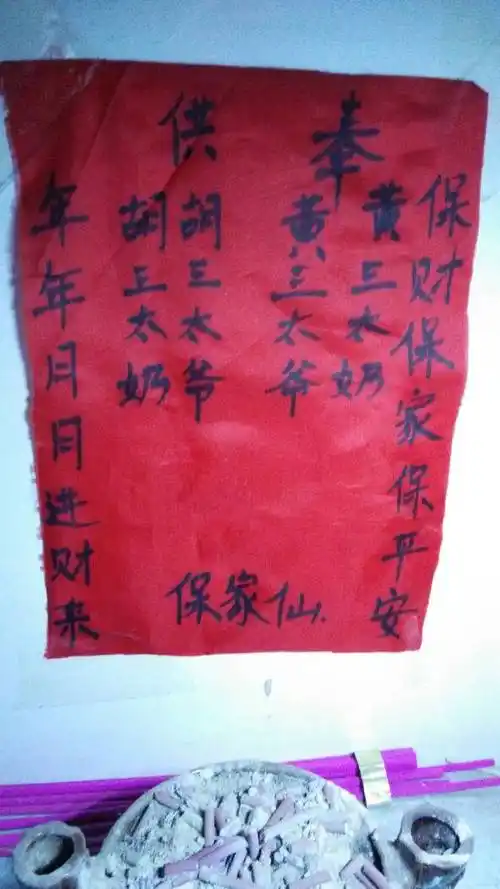 供奉
保财保家保平安
黄三太奶
黄三太爷
胡三太爷
胡三太奶
年年月月进财来
保家仙.